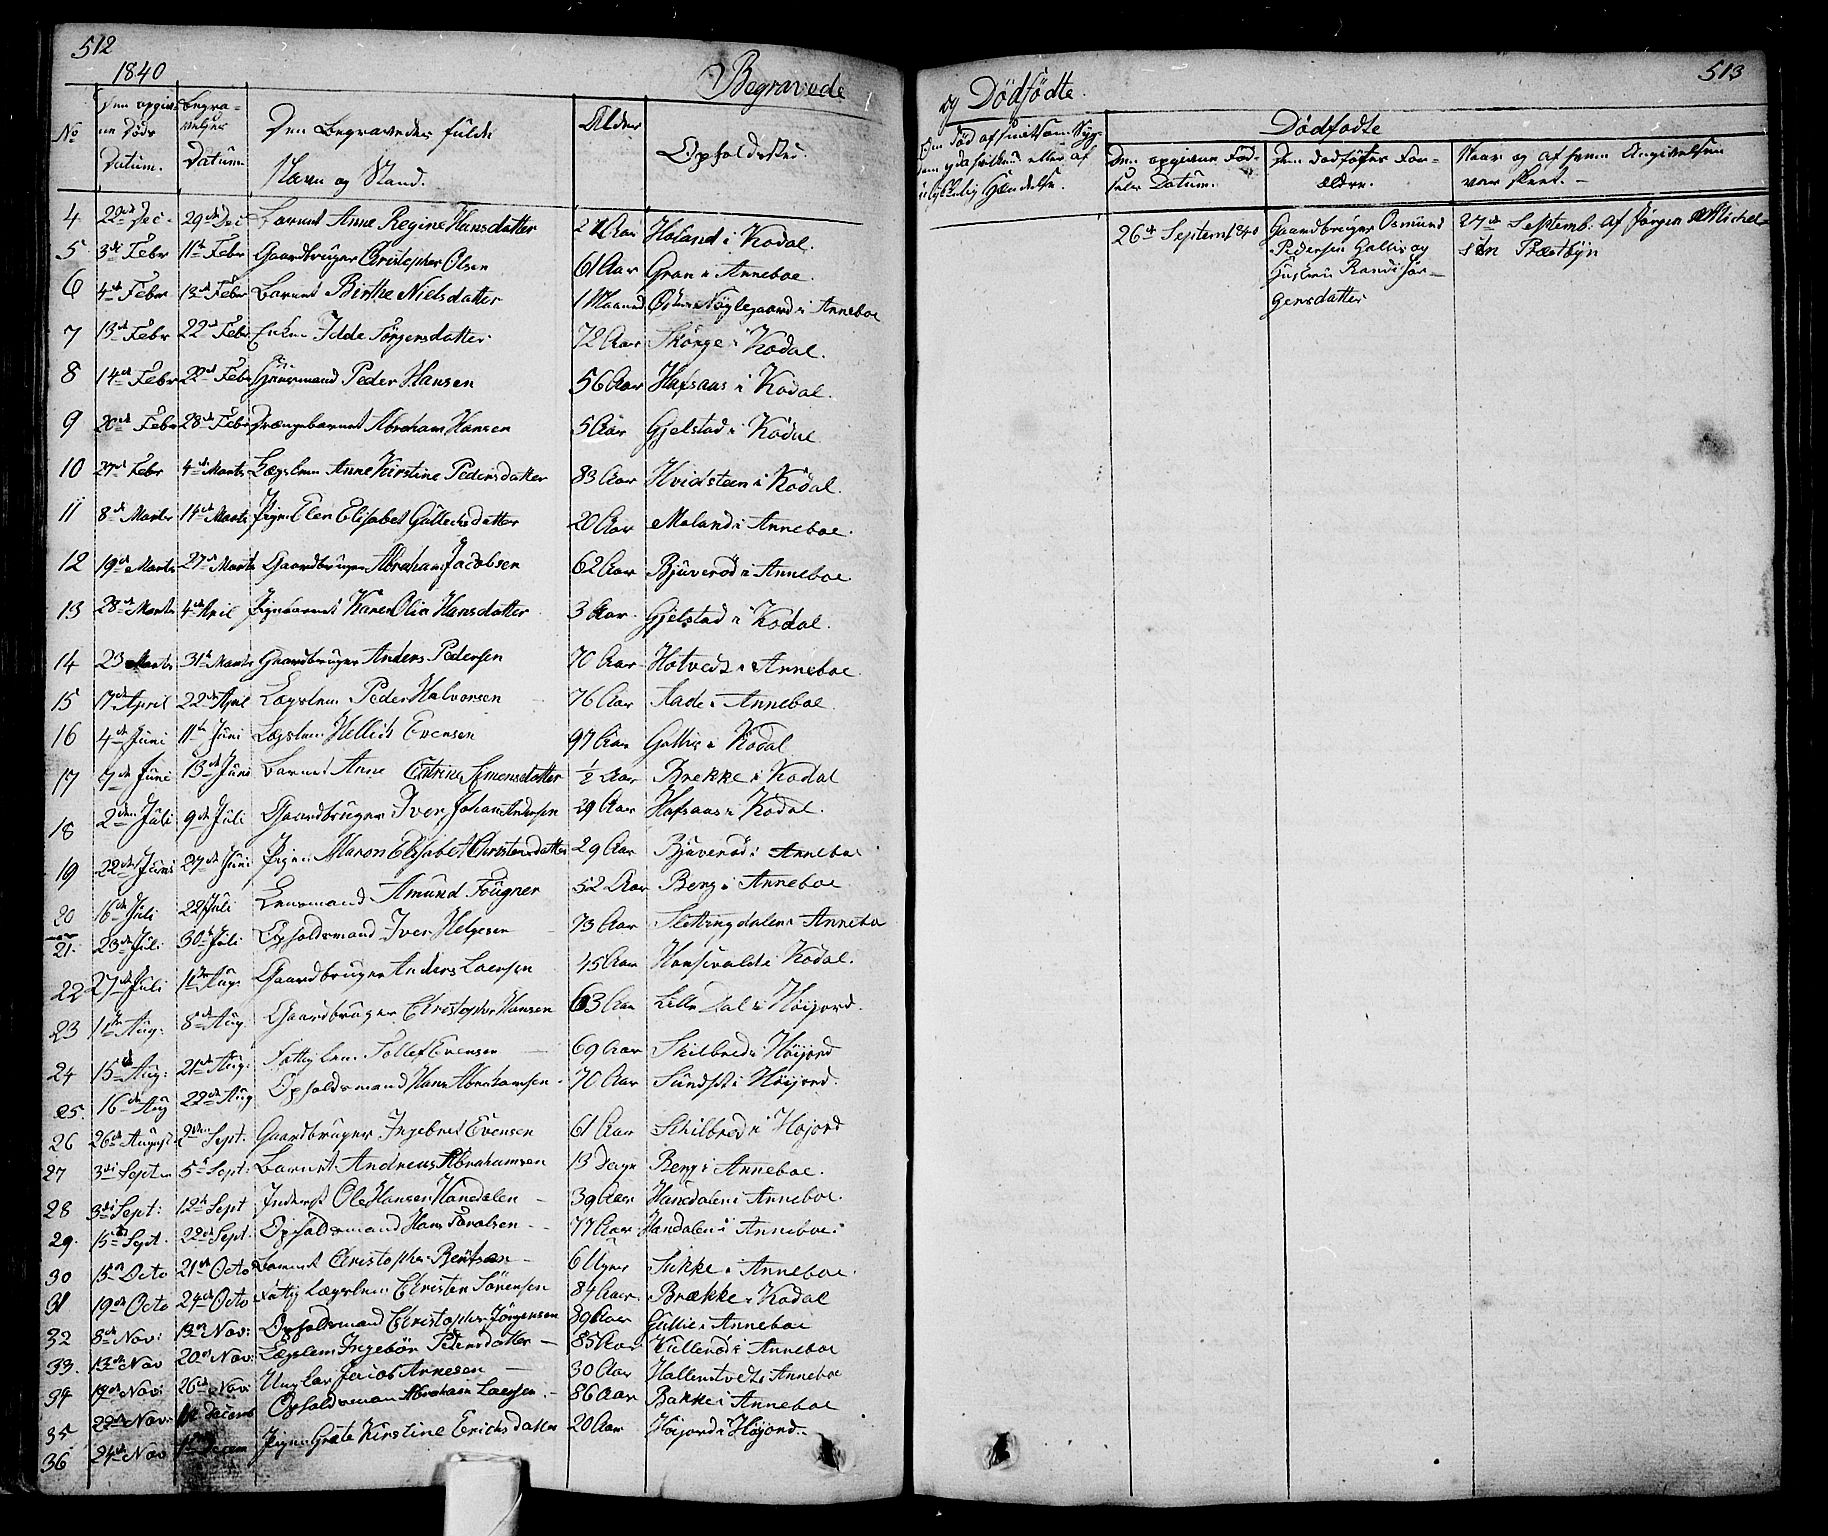 512
1840
Begravede
No
Den opgiv-
ne Døds
Datum.
Begra-
velses
Datum
Den Begravedes fulde
Navn og Stand.
Alder
Opholdsted.
4 22de Dec. 29de Dec Barnet Anne Regine Hansdatter Aar Holand i Kodal.
5 3de Febr 11te Febr Gaardbruger Christopher Olsen 61 Aar Gran i Anneboe.
6 4de Febr 13de Febr Barnet Birthe Nielsdatter 1 Maaned Østre Nøglegaard i Anneboe
7 13de Febr 22de Febr Enken Idde Jörgensdatter 72 Aar Skorge i Kodal.
8 14de Febr 22de Febr Huusmand Peder Hansen 56 Aar Hafsaas i Kodal.
9 20de Febr 28de Febr Drængebarnet Abraham Hansen 5 Aar Gjelstad i Kodal
10 27de Febr 4de Marts Lægslem Anne Kirstine Pedersdatter 83 Aar Hvidsteen i Kodal.
11 8de Marts 14de Marts Pigen Elen Elisabet Gullichsdatter 20 Aar Moland i Anneboe.
12 19de Marts 27de Marts Gaardbruger Abraham Jacobsen 62 Aar Bjuverød i Anneboe
13 28de Marts 4de April Pigebarnet Karen Olia Hansdatter 3 Aar. Gjelstad i Kodal.
14 23 Marts 31te Marts Gaardbruger Anders Pedersen 70 Aar Hotvedt i Anneboe.
15 17de April 22de April Lægslem Peder Halvorsen 76 Aar Aade i Anneboe.
16 4de Juni 11te Juni Lægslem Helliek Evensen 97 Aar Gallis i Kodal
17 7de Juni 13de Juni Barnet Anne Catrine Simensdatter ½ Aar Brekke i Kodal
18 2den Juli 9de Juli Gaardbruger Iver Johan Andersen 29 Aar Hafsaas i Kodal.
19 22de Juni 27de Juni Pigen Maren Elisabet Christensdatter 29 Aar Bjuverød i Anneboe
20 16de Juli 22 Juli Lensmand Amund Fougner 52 Aar Berg i Anneboe
21. 23de Juli 30te Juli Opholdsmand Iver Helgesen 73 Aar Slettingdalen i Anneboe
22 27de Juli 1te Aug: Gaardbruger Anders Laersen 45 Aar i Kodal.
23 1te Aug: 8de Aug. Gaardbruger Christopher Hansen 63 Aar Lille Dal i Höijord.
24 15de Aug: 21de Aug: Fattiglem Tollef Evensen 69 Aar Skilbred i Höijord
25. 16de Aug 22de Aug Opholdsmand Hans Abrahamsen 70 Aar Sundset i Höijord.
26 26de August 2den Sept. Gaardbruger Ingebret Evensen 61 Aar Schilbred i Hojord
27 3de Septem 5te Sept: Barnet Andreas Abrahamsen 13 Dage Berg i Anneboe.
28 3de Sept: 12te Sept Inderst Ole Hansen Handalen 39 Aar Handalen i Anneboe.
29. 15de Sept. 22de Sept. Opholdsmand Hans 77 Aar Handalen i Anneboe.
30 15de Octo 21de Octo Barnet Christopher Berntsen 6 Uger Sukke i Anneboe.
31 19de Octo 24de Octo Fattig Lægslem Christen Sörensen 84 Aar. Brække i Kodal
32 8de Nov: 13de Nov: Opholdsmand Christopher Jörgensen 89 Aar Gallis i Anneboe
33. 13de Nov 20de Nov: Lægslem Ingebör Pedersdatter 85 Aar Kullerød i Anneboe
34 17de Nov: 26de Nov: Ungkar Jacob Arnesen 30 Aar Hallenstvedt i Anneboe
35. 22de Nov: 1te Decemb Opholdsmand Abraham Laersen 86 Aar Bakke i Anneboe
36 24de Nov 1te Decem Pigen Grete Kirstine Erichsdatter 20 Aar Höijord i Höijord.
513
og Dødfödte.
Om Död af smitsom Syg-
dom paafulgte eller af
ulykkelig Hændelse.
Dödfodte
Den opgivne Föd-
sels Datum.
Den dödfödtes For-
ældre.
Naar og af hvem Angivelsen
var skeet.
26de Septemb 1840
Gaardbruger Osmund
Pedersen Gallis og
Hustru Randi Jör-
gensdatter
27de Septemb. af Jörgen Michel-
sön Præstbyn